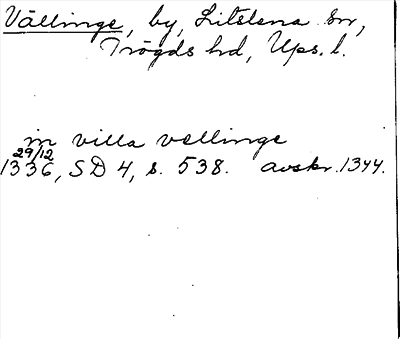 Vällinge, by, Litslena sn,
Trögds hd, Ups. l.
in villa vellinge
29/12
1336, SD 4, s. 538. avskr. 1344.